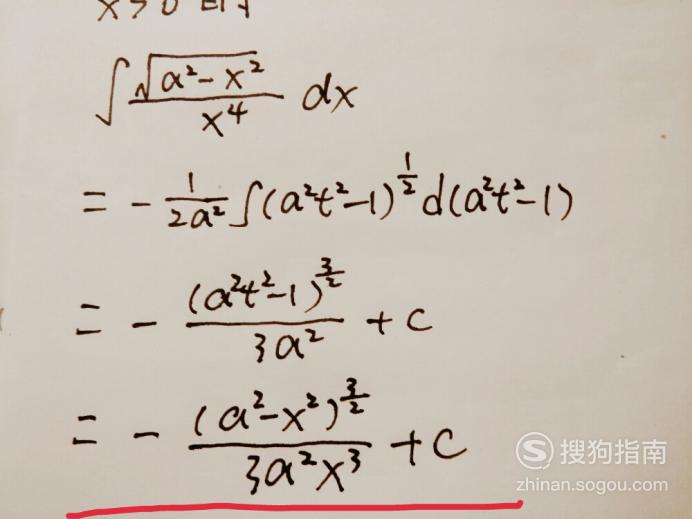 x>0时
∫ √(a²-x²) / x⁴ dx
= - 1/(2a²) ∫(a²t²-1)^(1/2) d(a²t²-1)
= - (a²t²-1)^(3/2) / (3a²) + C
= - (a²-x²)^(3/2) / (3a²x³) + C
S 搜狗指南
zhinan.sogou.com